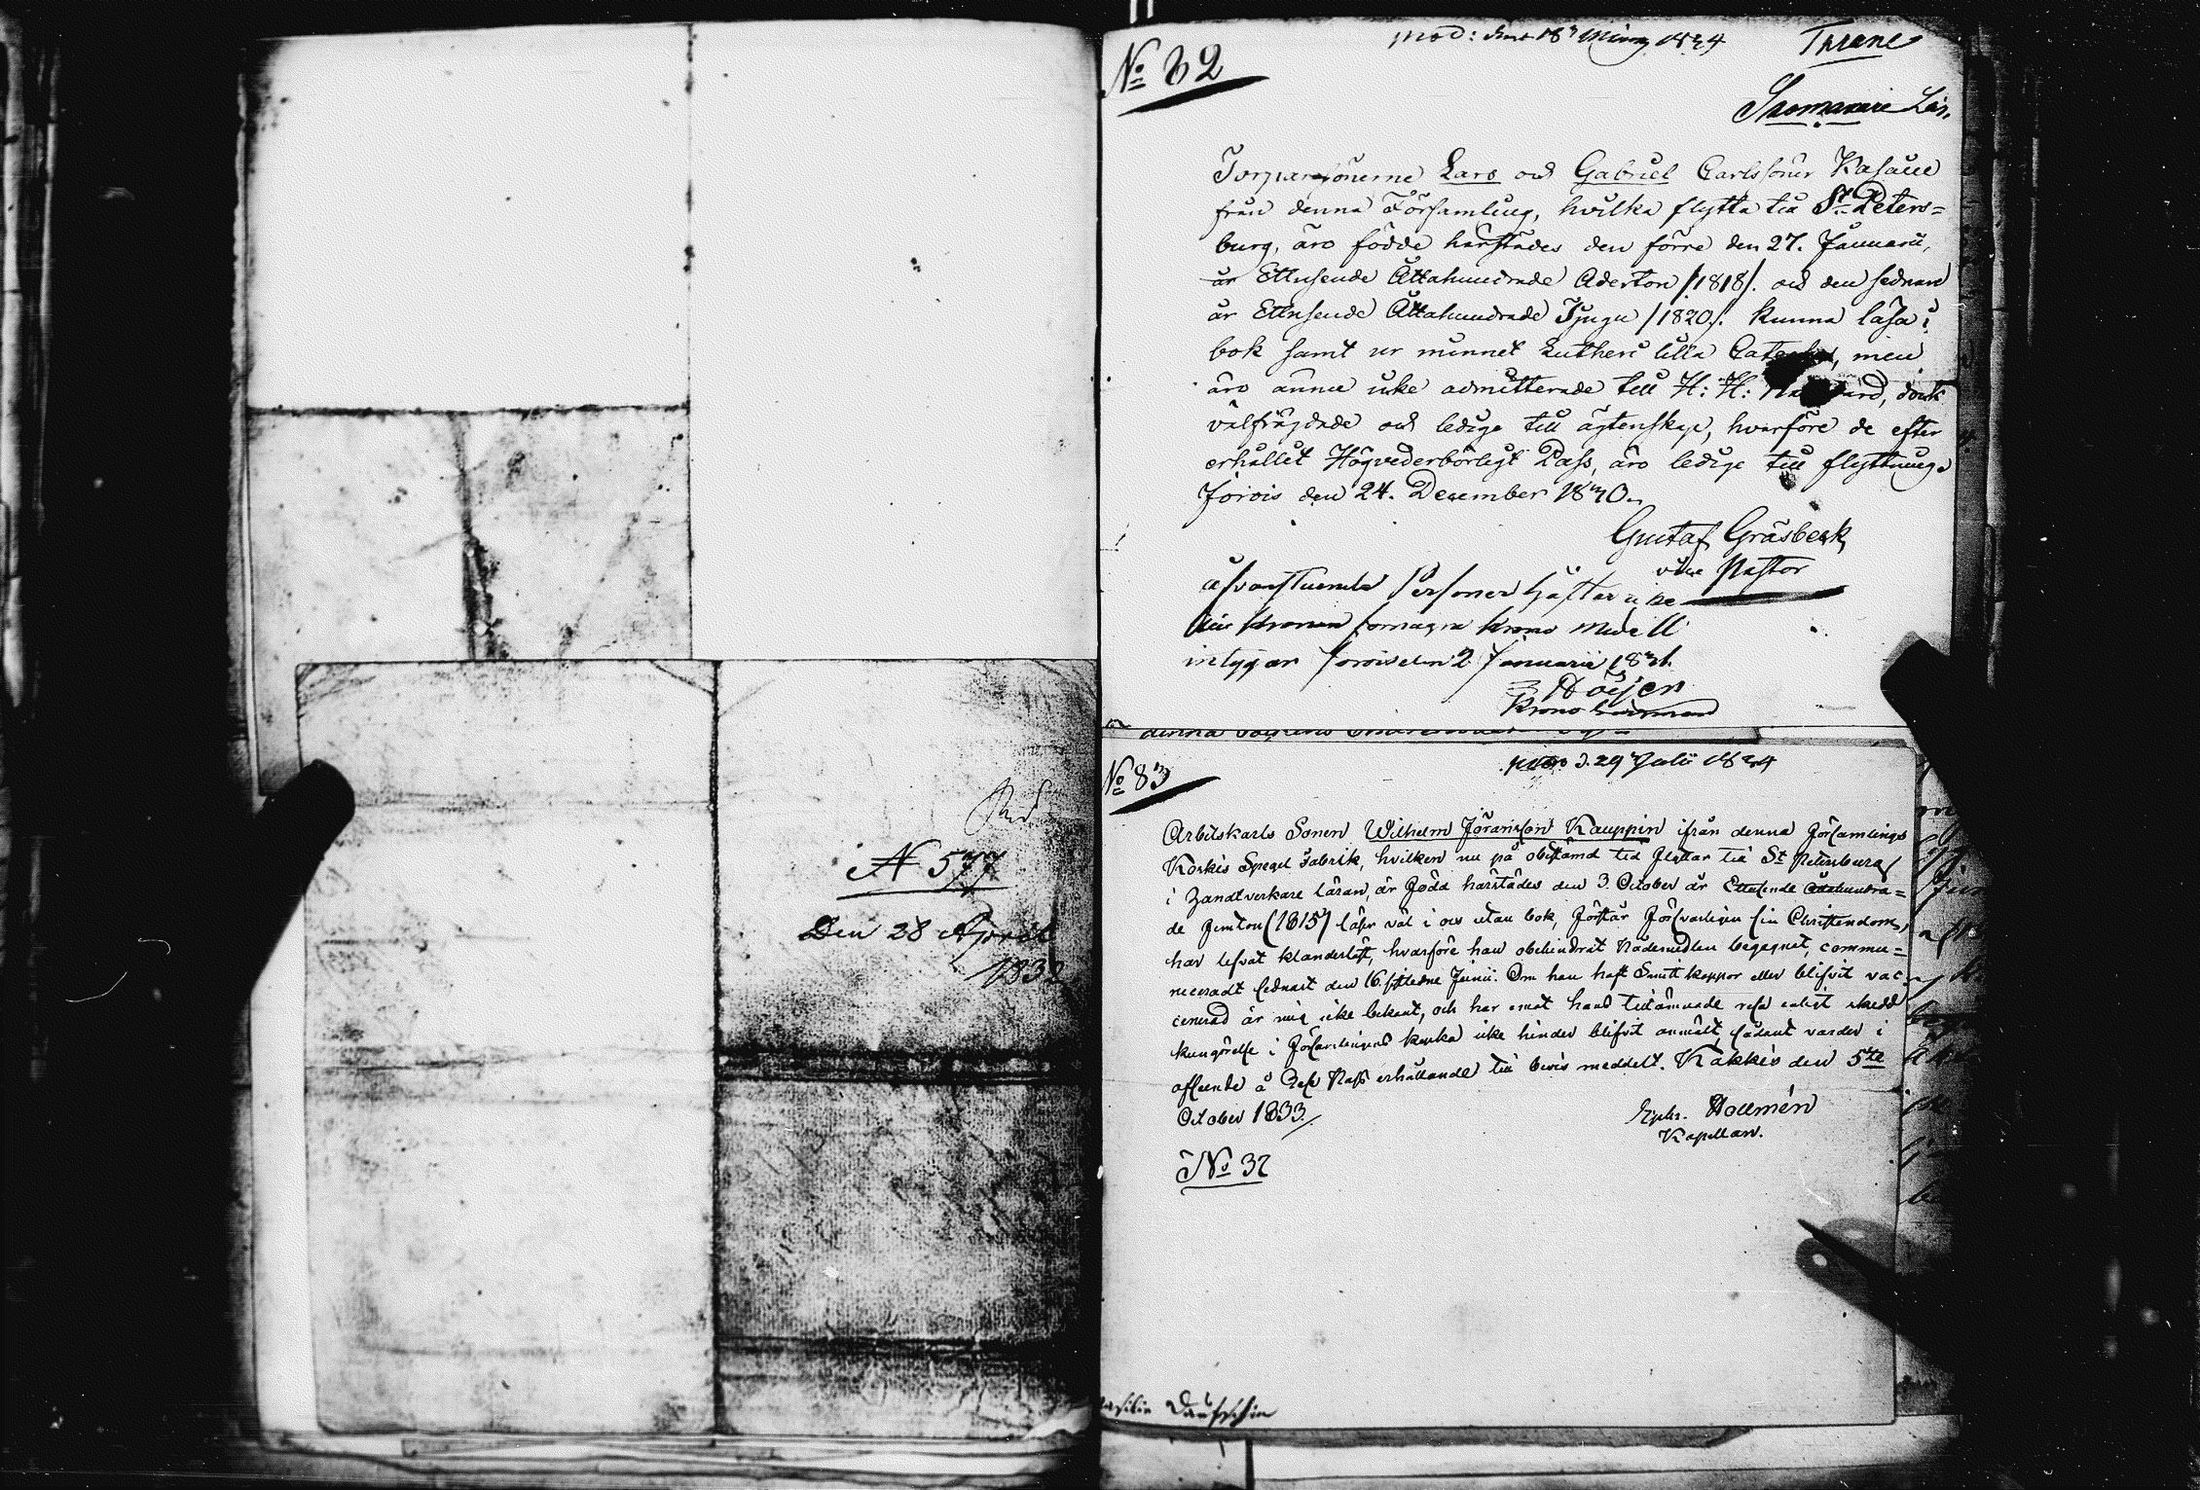 N 577
Den 28 April
1832
No 82
Mod: den 18 1834
Thrane
Län.
Torparesönerne Lars och Gabriel Carlssöner Kasaue
från denna Församling, hvilka flytta till St. Peters=
burg, äro födde härstädes den förre den 27. Januarii,
år Ettusende Åttahundrade Aderton /:1818/. och den sednare
år Ettusende Åttahundrade Tjugu /1820/. kunna läsa i
bok samt ur minnet Lutheri lilla men
äro ännu icke admitterade till H: H: dock
välfrägdade och ledige till ägtenskap, hvarföre de efter
erhållet Högvederbörligt Pass, äro ledige till flyttning.
Jorois den 24. December 1830.
Gustaf Gråsbeck
vice Pastor
Personer häftar icke
intygar Jorois den 2 Januarii 1831.
Krono Länsman
No 83
d. 29 Julii 1834
Arbetskarls Sonen Wilhelm Jöransson Kauppin ifrån denna Församlings
Kockis Spegel Fabrik, hvilken nu på obestämd tid flyttar till St Petersburg
i Handtverkare läran, är född härstädes den 3. October år Ettusende Åttahundra=
de femton (1815) läser väl i och utan bok, förstår försvarligen sin Christendom,
har lefvat klanderlöst, hvarföre han obehindrat Nådemedlen begagnat, commu=
niceradt sednast den 16. sistledne Junii. Om han haft Smittkoppor eller blifvit vac=
cinerad är mig icke bekant, och har emot hans tillämnade resa enligt skedd
kungörelse i Församlingens kyrka icke hinder blifvit anmält, sådant varder i
afseende å Pass erhållande till bevis meddelt. Kakkis den 5te
October 1833.
Hollmén
Kapellan.
No 37